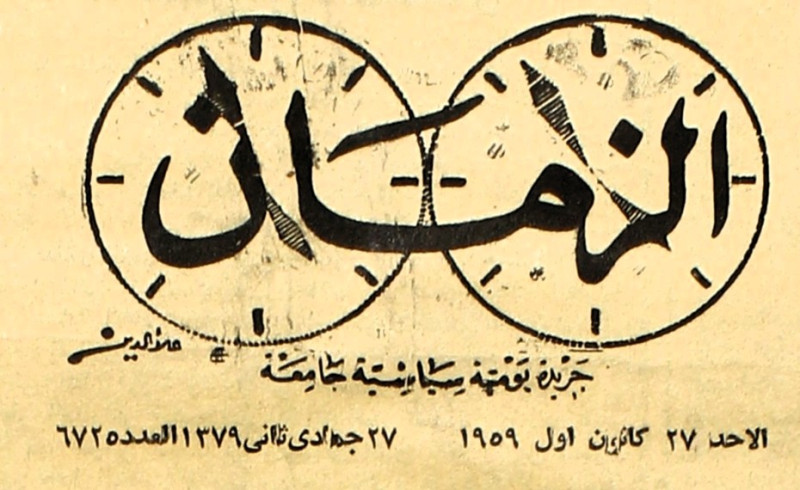 الزمان
علاءالدين
جَرِيْدَة يَوْمِيَّة سِيَاسِيَّة جَامِعَة
الاحد ٢٧ كانون اول ١٩٥٩ ٢٧ جمادى ثانى ١٣٧٩ العدد ٦٧٢٥